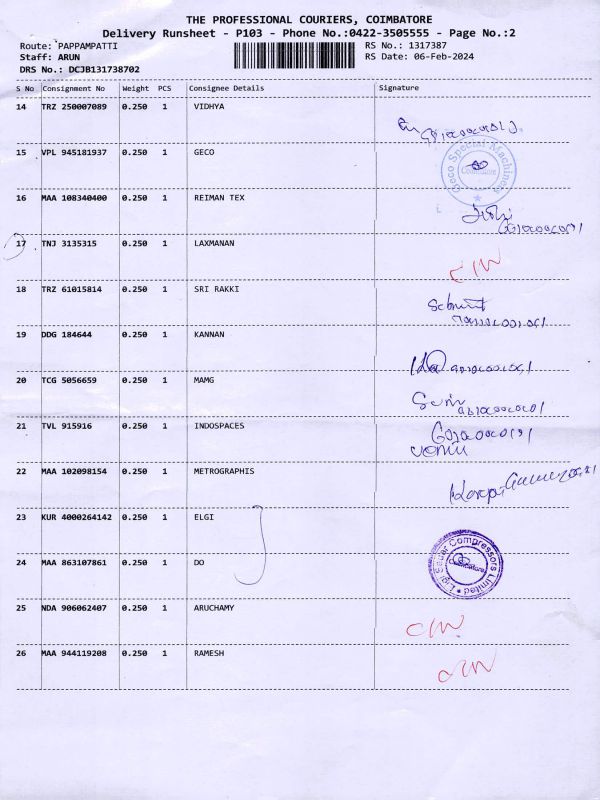 THE PROFESSIONAL COURIERS, COIMBATORE
Delivery Runsheet - P103 - Phone No.:0422-3505555 - Page No.:2
Route: PAPPAMPATTI RS No.: 1317387
Staff: ARUN RS Date: 06-Feb-2024
DRS No.: DCJB131738702
S No Consignment No Weight PCS Consignee Details Signature
14 TRZ 250007089 0.250 1 VIDHYA
15 VPL 945181937 0.250 1 GECO
Geco Special Machines
Coimbatore
16 MAA 108340400 0.250 1 REIMAN TEX
17 TNJ 3135315 0.250 1 LAXMANAN
18 TRZ 61015814 0.250 1 SRI RAKKI
19 DDG 184644 0.250 1 KANNAN
20 TCG 5056659 0.250 1 MAMG
21 TVL 915916 0.250 1 INDOSPACES
22 MAA 102098154 0.250 1 METROGRAPHIS
23 KUR 4000264142 0.250 1 ELGI
24 MAA 863107861 0.250 1 DO
Compressors Limited
25 NDA 906062407 0.250 1 ARUCHAMY
26 MAA 944119208 0.250 1 RAMESH